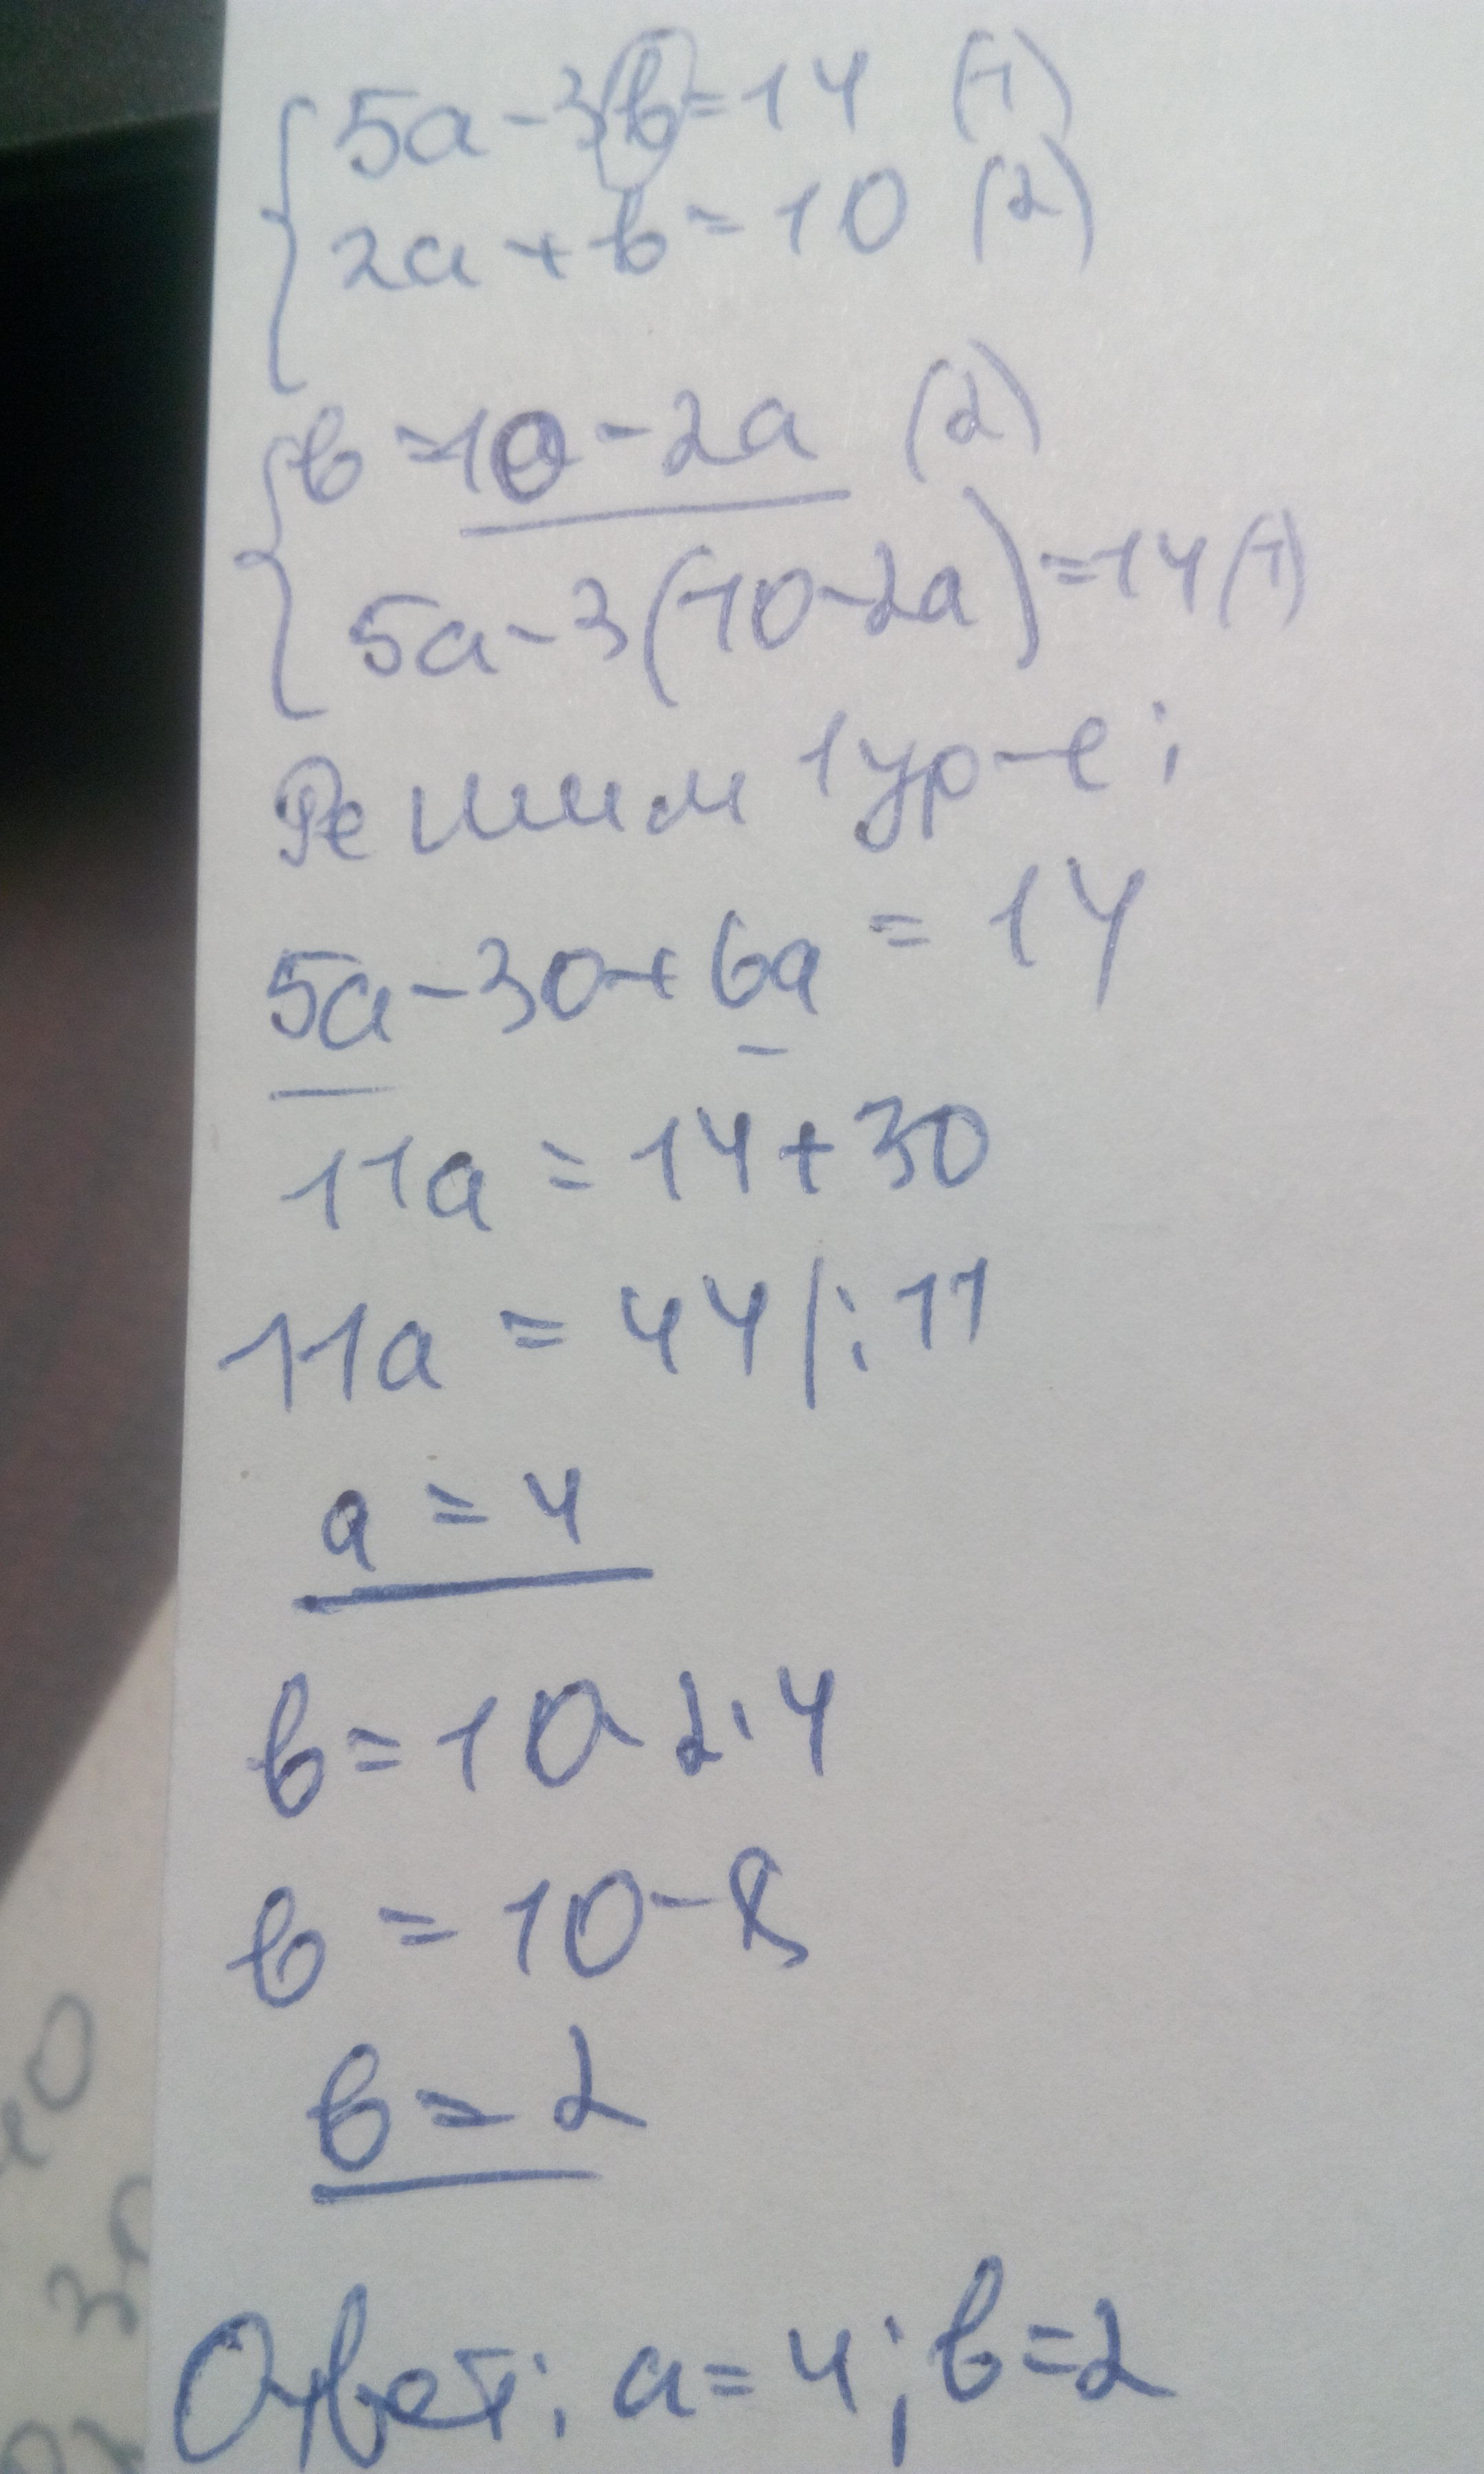 5a-3b=14 (1)
2a+b=10 (2)
b=10-2a (2)
5a-3(10-2a)=14(1)
Решим 1 ур-е:
5a-30+6a=14
11a=14+30
11a=44/:11
a=4
b=10-2·4
b=10-8
b=2
Ответ: a=4; b=2